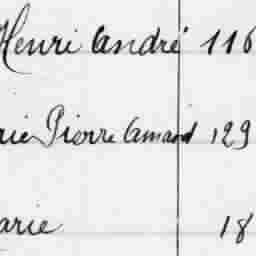 Henri André 116
rie Pierre Amand 129
arie 18